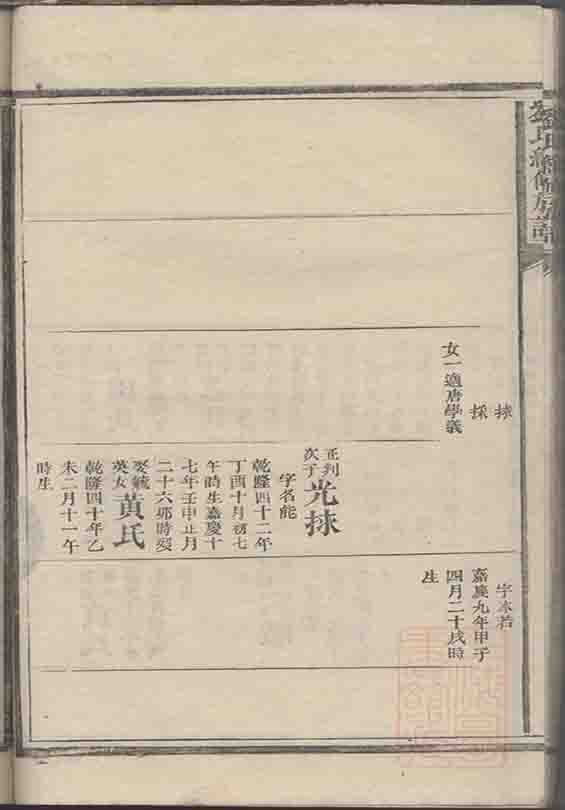 劉氏續修房譜
捄
採
女一適唐學義
正判
次子
光捄
字名能
乾隆四十二年
丁酉十月初七
午時生嘉慶十
七年壬申正月
二十六卯時歿
娶毓
英女
黃氏
乾隆四十年乙
未二月十一午
時生
字本若
嘉慶九年甲子
四月二十戌時
生